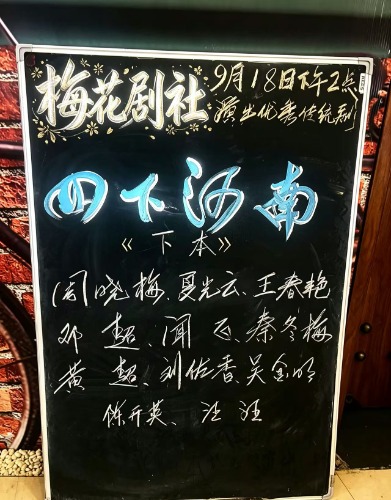 梅花剧社
9月18日下午2点
演出优秀传统剧
四下河南
《下本》
周晓梅、夏光云、王春艳
邓超、闻飞、秦冬梅
黄超、刘佑香、吴金明
陈开英、汪洭